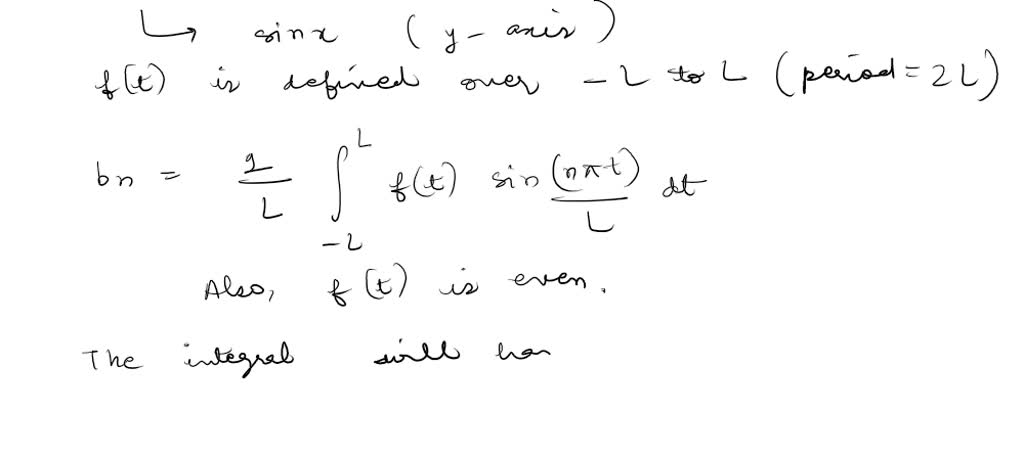 ↳ sinx (y-axis)
f(t) is defined over -L to L (period = 2L)
bn = 2/L ∫_{-L}^{L} f(t) sin (nπt)/L dt
Also, f(t) is even.
The integral will han